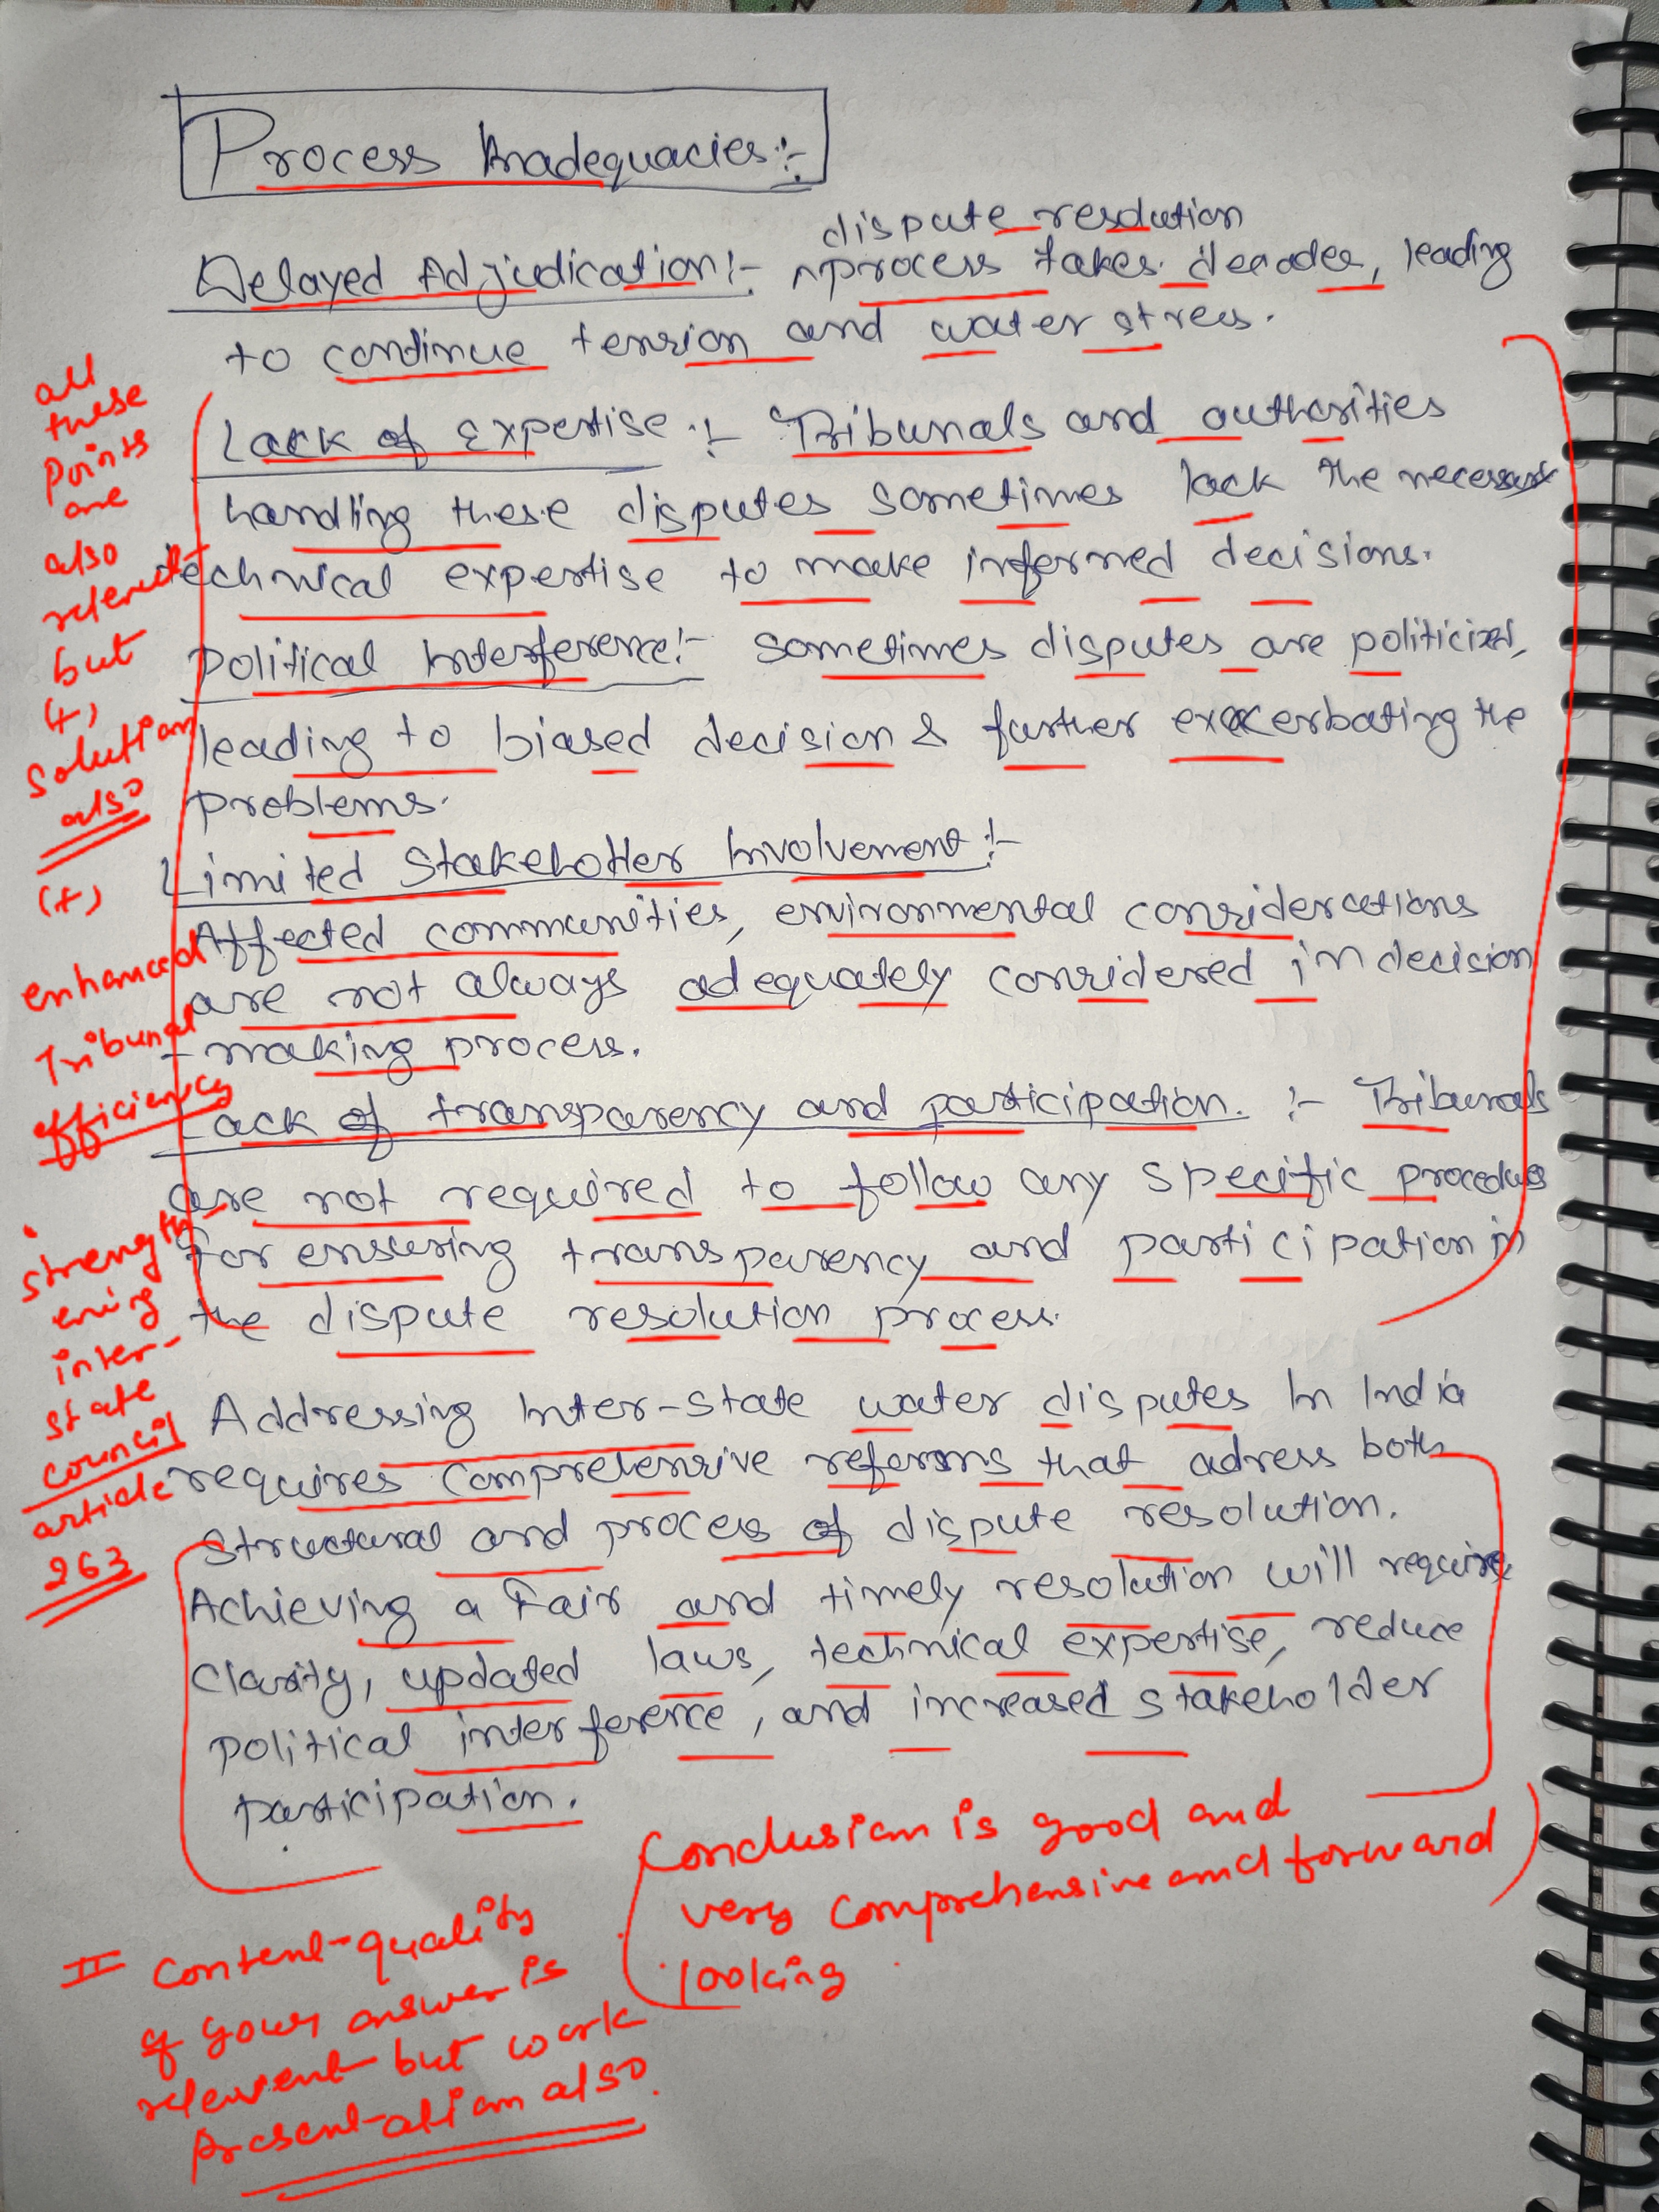 Process Inadequacies:-
dispute resolution
Delayed Adjudication:- process takes decades, leading
to continue tension and water stress.
Lack of Expertise:- Tribunals and authorities
handling these disputes sometimes lack the necessary
technical expertise to make informed decisions.
Political Interference:- sometimes disputes are politicized,
leading to biased decision & further exacerbating the
problems.
Limited Stakeholder Involvement:-
Affected communities, environmental considerations
are not always adequately considered in decision
-making process.
Lack of transparency and participation. :- Tribunals
are not required to follow any specific procedures
for ensuring transparency and participation in
the dispute resolution process.
Addressing Inter-state water disputes In India
requires comprehensive reforms that adress both
structural and process of dispute resolution.
Achieving a Fair and timely resolution will require
clarity, updated laws, technical expertise, reduce
political interference, and increased stakeholder
participation.
all
these
points
are
also
relevent
but
(+)
solution
also
(+)
enhanced
Tribunal
efficiency
strength-
ening
inter-
state
council
article
263
Conclusion is good and
very comprehensive and forward
looking
II content-quality
of your answer is
relevent but work
present-ation also.